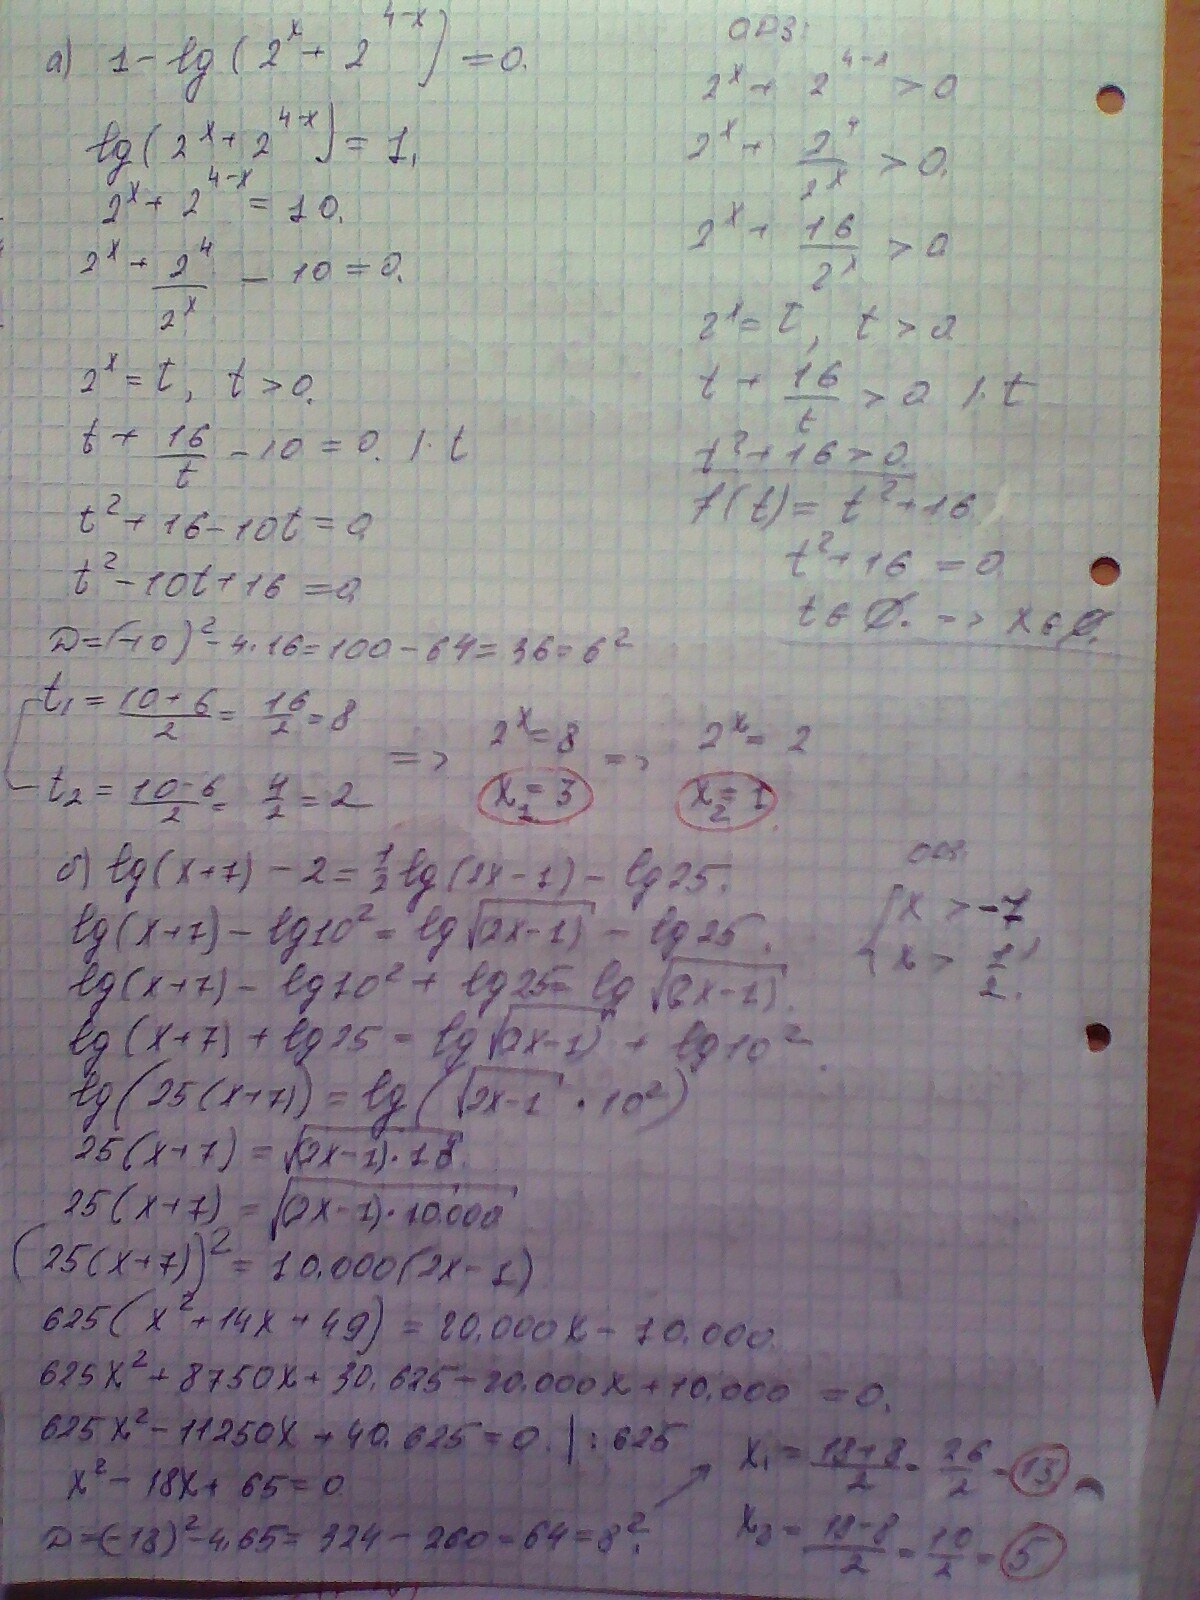 а) 1 - lg(2^x + 2^(4-x)) = 0.
lg(2^x + 2^(4-x)) = 1.
2^x + 2^(4-x) = 10.
2^x + 2^4/2^x - 10 = 0.
2^x = t, t > 0.
t + 16/t - 10 = 0. | · t
t^2 + 16 - 10t = 0
t^2 - 10t + 16 = 0
D = (-10)^2 - 4·16 = 100 - 64 = 36 = 6^2
t₁ = (10+6)/2 = 16/2 = 8
t₂ = (10-6)/2 = 4/2 = 2
=> 2^x = 8 => 2^x = 2
x₁ = 3 x₂ = 1
ОДЗ:
2^x + 2^(4-x) > 0
2^x + 2^4/2^x > 0.
2^x + 16/2^x > 0
2^x = t, t > 0
t + 16/t > 0 | · t
t^2 + 16 > 0
f(t) = t^2 + 16
t^2 + 16 = 0
t ∈ Ø. => x ∈ Ø.
б) lg(x+7) - 2 = 1/2 lg(2x-1) - lg25.
lg(x+7) - lg10^2 = lg√(2x-1) - lg25.
lg(x+7) - lg10^2 + lg25 = lg√(2x-1).
lg(x+7) + lg25 = lg√(2x-1) + lg10^2
lg(25(x+7)) = lg(√(2x-1) · 10^2)
25(x+7) = √(2x-1)·
25(x+7) = √((2x-1)·10.000)
(25(x+7))^2 = 10.000(2x-1)
625(x^2 + 14x + 49) = 20.000x - 10.000.
625x^2 + 8750x + 30.625 - 20.000x + 10.000 = 0.
625x^2 - 11250x + 40.625 = 0. | : 625
x^2 - 18x + 65 = 0
D = (-18)^2 - 4·65 = 324 - 260 = 64 = 8^2.
x₁ = (18+8)/2 = 26/2 = 13
x₂ = (18-8)/2 = 10/2 = 5
ОДЗ
{ x > -7
x > 1/2.